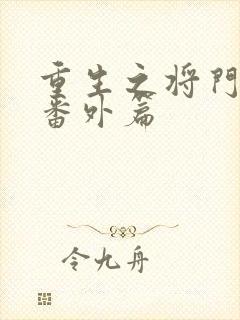 重生之将门
番外篇
令九舟